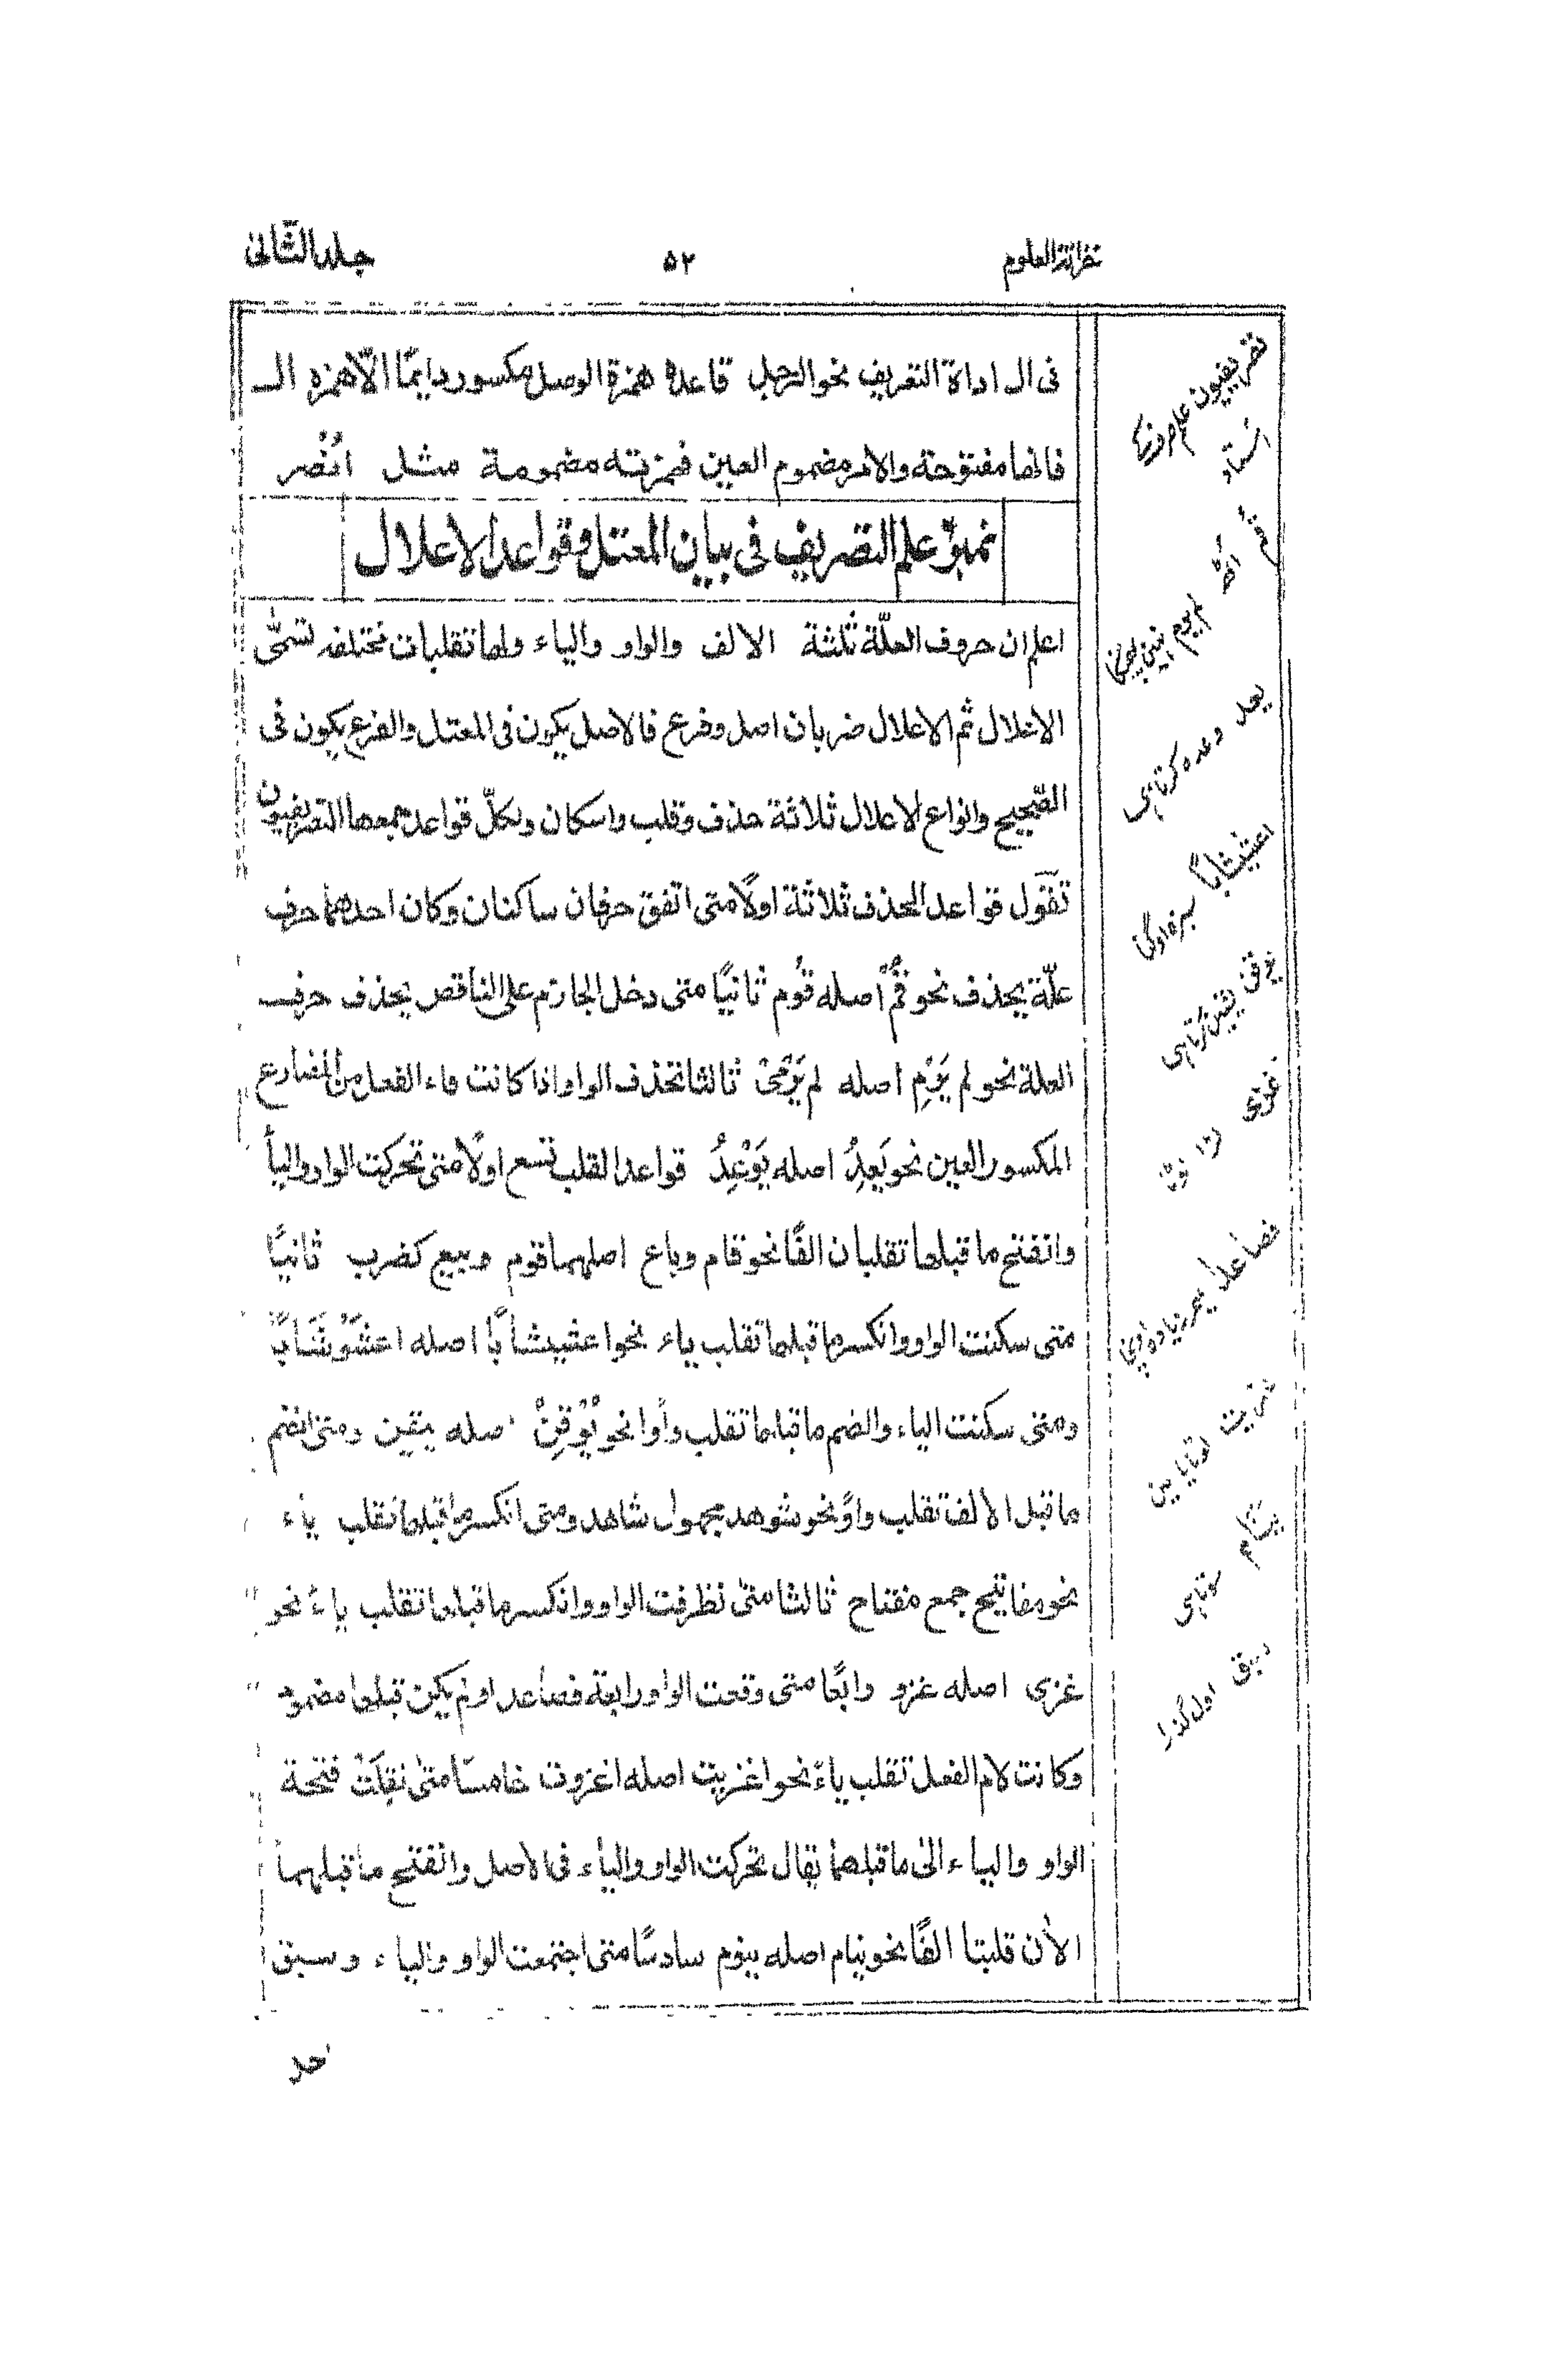 خزانة العلوم
۵۲
جلد الثّانى
فى ال اداة التعريف نحو الرّجل قاعدة همزة الوصل مكسور دايمًا الّا همزه الـ
فانها مفتوحة والامر مضموم العين فهمزته مضمومة مثل اُنْصُر
علم التصريف فى بيان المعتل وقواعد الاعلال
اعلم ان حروف العلّة ثلثة الالف والواو والياء ولها تقلبات مختلفه تسمّى
الاعلال ثم الاعلال ضربان اصل وفرع فالاصل يكون فى المعتل والفرع يكون فى
الصّحيح وانواع الاعلال ثلاثة حذف وقلب واسكان ولكلّ قواعد جمعها التصريفيون
تقول قواعد الحذف ثلاثة اولًا متى اتفق حرفان ساكنان وكان احدهما حرف
علّة يحذف نحو قُمْ اصله قُوم ثانيًا متى دخل الجازم على الناقص يحذف حرف
العلة نحو لم يَرْمِ اصله لم يَرْمِىْ ثالثا تحذف الواو اذا كانت فاء الفعل من المضارع
المكسور العين نحو يَعِدُ اصله يَوْعِدُ قواعد القلب تسع اولًا متى تحركت الواو والياء
وانفتح ما قبلها تقلبان الفًا نحو قام وباع اصلهما قوم وبيع كضرب ثانيًا
متى سكنت الواو وانكسر ما قبلها تقلب ياء نحو اعشيشابًا اصله اعشوْشَابًا
ومتى سكنت الياء وانضم ما قبلها تقلب واوا نحو يُوْقِنُ اصله ييقن ومتى انضم
ما قبل الالف تقلب واوً نحو شوهد مجهول شاهد ومتى انكسر ما قبلها تقلب ياء
نحو مفاتيح جمع مفتاح ثالثا متى تطرفت الواو وانكسر ما قبلها تقلب ياءً نحو
غزى اصله غزو رابعًا متى وقعت الواو رابعة فصاعدا ولم يكن قبلها مضموم
وكانت لام الفعل تقلب ياءً نحو اغزيت اصله اغزوت خامسًا متى نقِلَتْ فتحة
الواو والياء الى ما قبلهما يقال تحركت الواو والياء فى الاصل وانفتح ما قبلهما
الاٰن قلبتا الفًا نحو ينام اصله ينوم سادسًا متى اجتمعت الواو والياء وسبق
احد
تصريفيون علم صرف كے
استاد
يعد وعده كرتا ہى
اعشيشابًا سبزه اوگنا
يوقن يقين كرتا ہى
غزى لڑا
ينام سوتا ہى
سبق اول گذرا